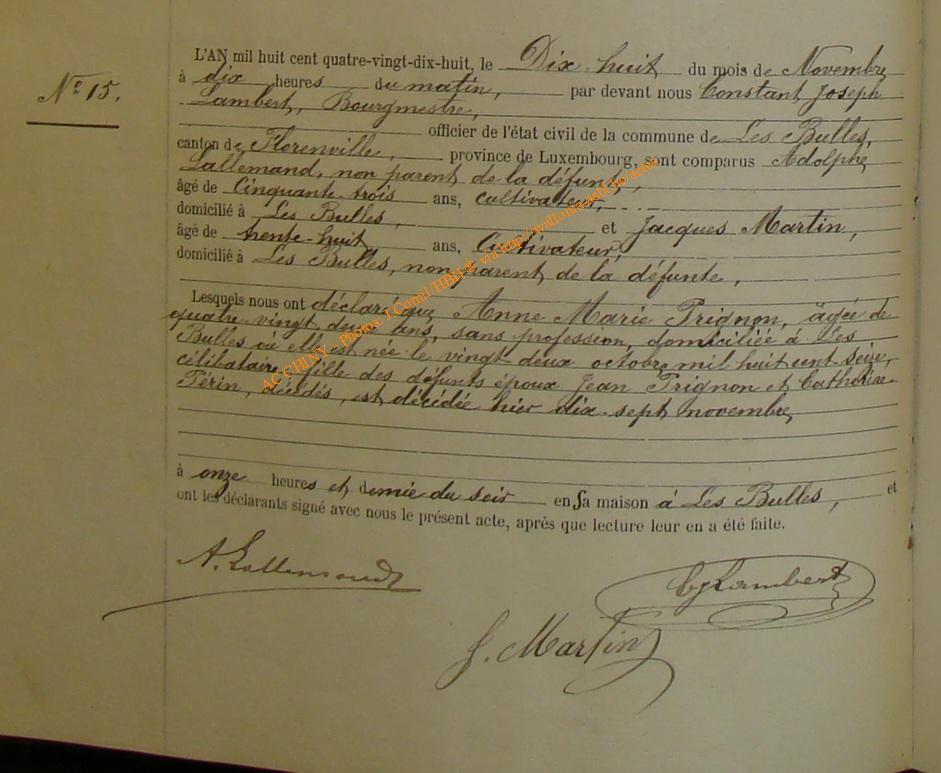 L'AN mil huit cent quatre-vingt-dix-huit, le Dix-huit du mois de Novembre
N° 15.
à dix heures du matin, par devant nous Constant Joseph
Lambert, Bourgmestre,
officier de l'état civil de la commune de Les Bulles,
canton de Florenville, province de Luxembourg, sont comparus Adolphe
Lallemand, non parent de la défunte,
âgé de Cinquante-trois ans, cultivateur,
domicilié à Les Bulles, et Jacques Martin,
âgé de trente-huit ans, Cultivateur,
domicilié à Les Bulles, non parent de la défunte,
Lesquels nous ont déclaré que Anne Marie Prignon, âgée de
quatre-vingt deux ans, sans profession, domiciliée à Les
Bulles où elle est née le vingt deux octobre mil huit cent seize,
célibataire, fille des défunts époux Jean Prignon et Catherine
Périn, décédés, est décédée hier dix-sept novembre,
à onze heures et demie du soir en sa maison à Les Bulles, et
ont les déclarants signé avec nous le présent acte, après que lecture leur en a été faite.
A. Lallemand
CJ Lambert
J. Martin